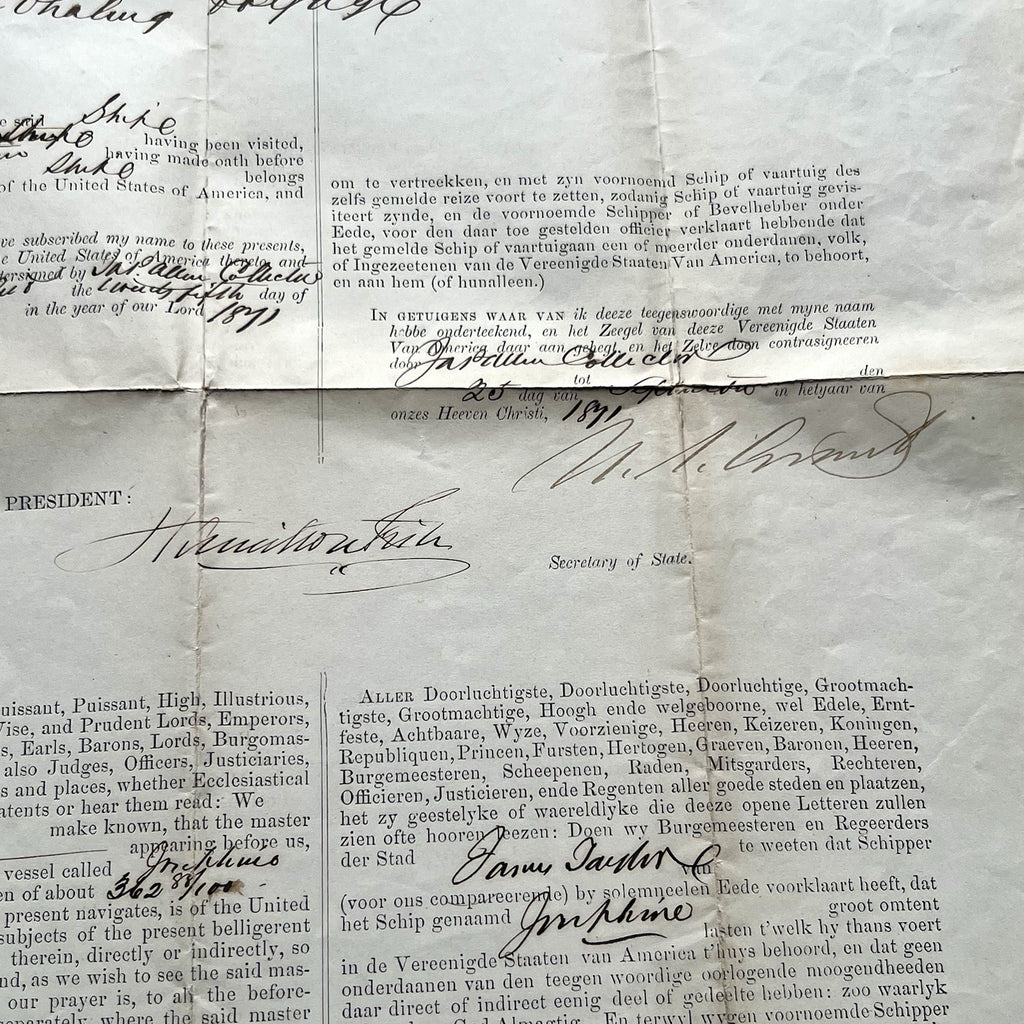 Whaling voyage
e said Ship
having been visited,
having made oath before
Ship belongs
of the United States of America, and
ve subscribed my name to these presents,
e United States of America thereto and
tersigned by Jas Allen Collector
the twenty fifth day of
in the year of our Lord 1871
om te vertreekken, en met zyn voornoemd Schip of vaartuig des
zelfs gemelde reize voort te zetten, zodanig Schip of vaartuig gevis-
iteert zynde, en de voornoemde Schipper of Bevelhebber onder
Eede, voor den daar toe gestelden officier verklaart hebbende dat
het gemelde Schip of vaartuigaan een of meerder onderdanen, volk,
of Ingezeetenen van de Vereenigde Staaten Van America, to behoort,
en aan hem (of hunalleen.)
IN GETUIGENS WAAR VAN ik deeze teegenswoordige met myne naam
hebbe onderteekend, en het Zeegel van deeze Vereenigde Staaten
Van America daar aan gehegt, en het Zelve doen contrasigneeren
door Jas Allen Collector den
tot
25 dag van September in hetyaar van
onzes Heeven Christi, 1871
U. S. Grant
PRESIDENT:
Hamilton Fish
Secretary of State.
uissant, Puissant, High, Illustrious,
Vise, and Prudent Lords, Emperors,
s, Earls, Barons, Lords, Burgomas-
also Judges, Officers, Justiciaries,
s and places, whether Ecclesiastical
atents or hear them read: We
make known, that the master
appearing before us,
vessel called Josephine
en of about 362 89/100
present navigates, is of the United
subjects of the present belligerent
therein, directly or indirectly, so
nd, as we wish to see the said mas-
our prayer is, to all the before-
separately, where the said master
ALLER Doorluchtigste, Doorluchtigste, Doorluchtige, Grootmach-
tigste, Grootmachtige, Hoogh ende welgeboorne, wel Edele, Ernt-
feste, Achtbaare, Wyze, Voorzienige, Heeren, Keizeren, Koningen,
Republiquen, Princen, Fursten, Hertogen, Graeven, Baronen, Heeren,
Burgemeesteren, Scheepenen, Raden, Mitsgarders, Rechteren,
Officieren, Justicieren, ende Regenten aller goede steden en plaatzen,
het zy geestelyke of waereldlyke die deeze opene Letteren zullen
zien ofte hooren leezen: Doen wy Burgemeesteren en Regeerders
der Stad te weeten dat Schipper
van
(voor ons compareerende) by solemneelen Eede voorklaart heeft, dat
het Schip genaamd Josephine groot omtent
lasten t'welk hy thans voert
in de Vereenigde Staaten van America t'huys behoord, en dat geen
onderdaanen van den teegen woordige oorlogende moogendheeden
daar direct of indirect eenig deel of gedeelte hebben: zoo waarlyk
God Almagtig. En terwyl wygen voornoemde Schipper